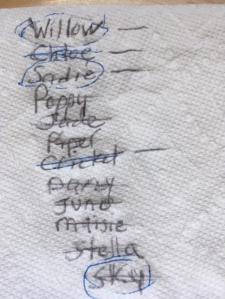 Willow —
Chloe —
Sadie —
Poppy
Jade
Piper
Cricket —
Darcy
JUNO
Maisie
Stella
SKY